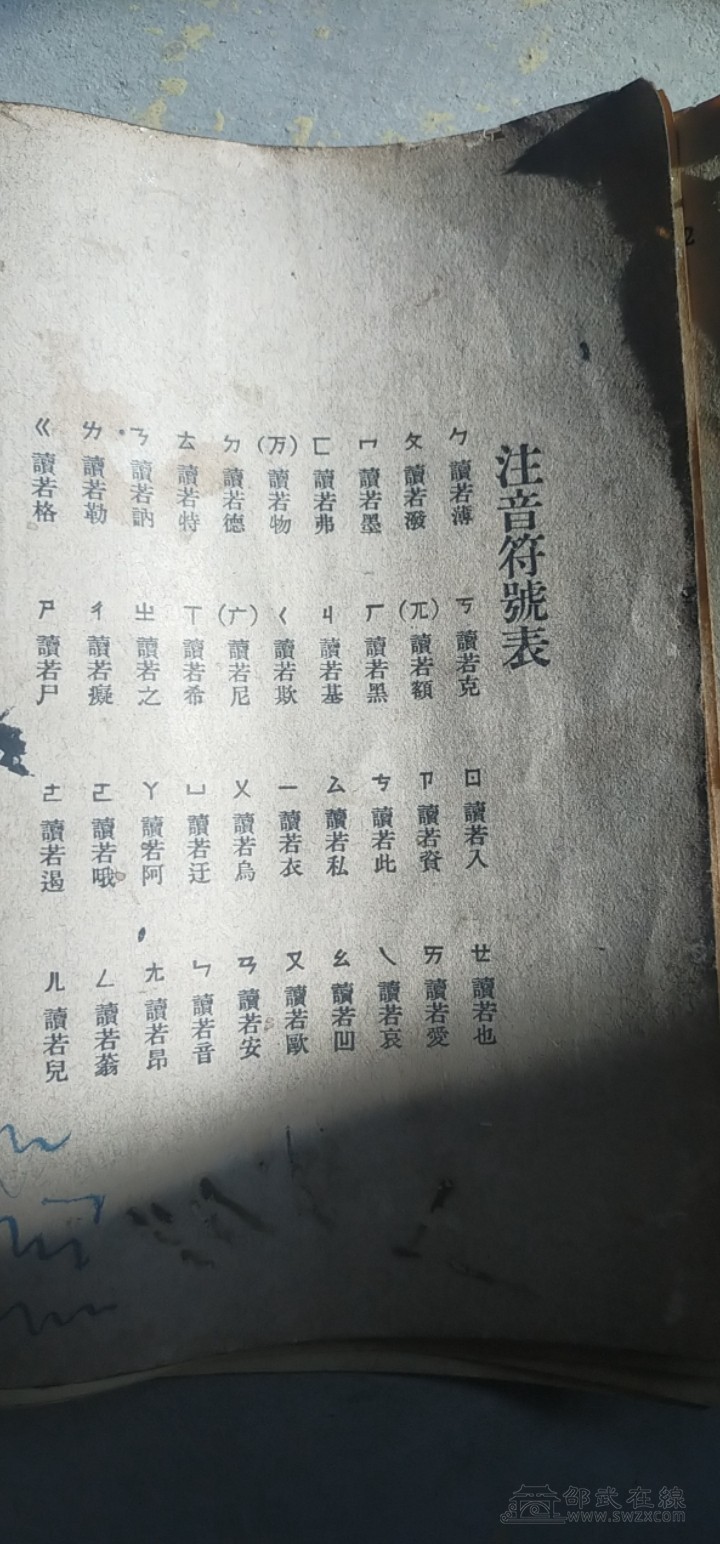 注音符號表
ㄅ 讀若薄
ㄆ 讀若潑
ㄇ 讀若墨
ㄈ 讀若弗
(万) 讀若物
ㄉ 讀若德
ㄊ 讀若特
ㄋ 讀若訥
ㄌ 讀若勒
ㄍ 讀若格
ㄎ 讀若克
(兀) 讀若額
ㄏ 讀若黑
ㄐ 讀若基
ㄑ 讀若欺
(广) 讀若尼
ㄒ 讀若希
ㄓ 讀若之
ㄔ 讀若癡
ㄕ 讀若尸
ㄖ 讀若入
ㄗ 讀若資
ㄘ 讀若此
ㄙ 讀若私
一 讀若衣
ㄨ 讀若烏
ㄩ 讀若迂
ㄚ 讀若阿
ㄛ 讀若哦
ㄜ 讀若遏
ㄝ 讀若也
ㄞ 讀若愛
ㄟ 讀若哀
ㄠ 讀若凹
ㄡ 讀若歐
ㄢ 讀若安
ㄣ 讀若音
ㄤ 讀若昂
ㄥ 讀若翁
ㄦ 讀若兒
2
邵武在線
www.swzx.com